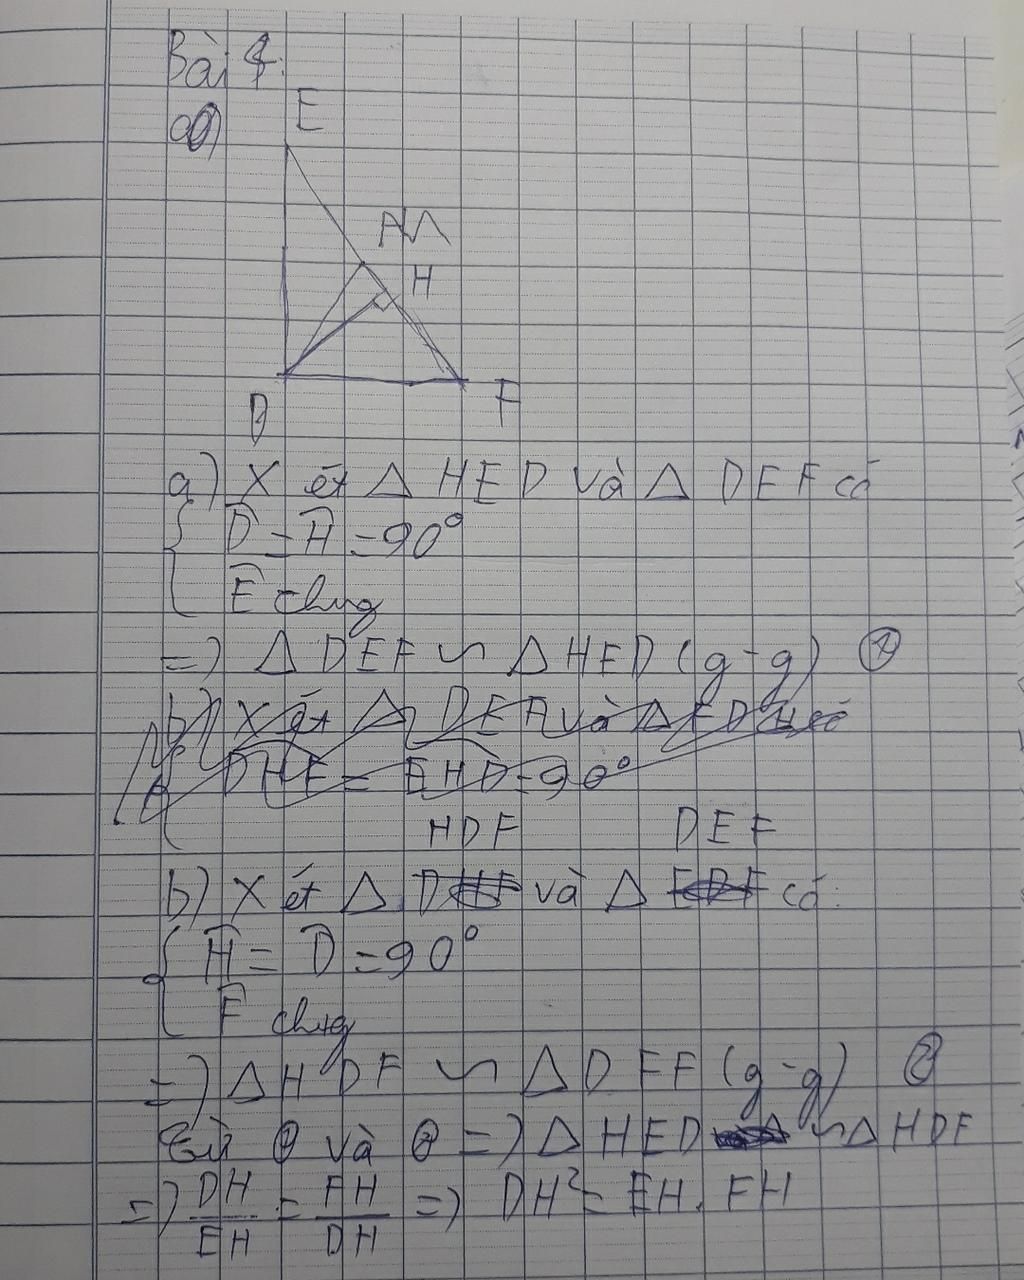 Bài 4:
a)
E
M
H
D
F
a) Xét △ HED và △ DEF có
D̂ = Ĥ = 90°
Ê chung
=) △ DEF ∽ △ HED (g-g) ①
b) Xét △ DEF và △ EDH có
DHE = EHD = 90°
HDF DEF
b) Xét △ DHF và △ EDF có:
Ĥ = D̂ = 90°
F̂ chug
=) △ HDF ∽ △ DEF (g-g) ②
Từ ① và ② =) △ HED ∽ △ HDF
=) DH/EH = FH/DH =) DH² = EH. FH